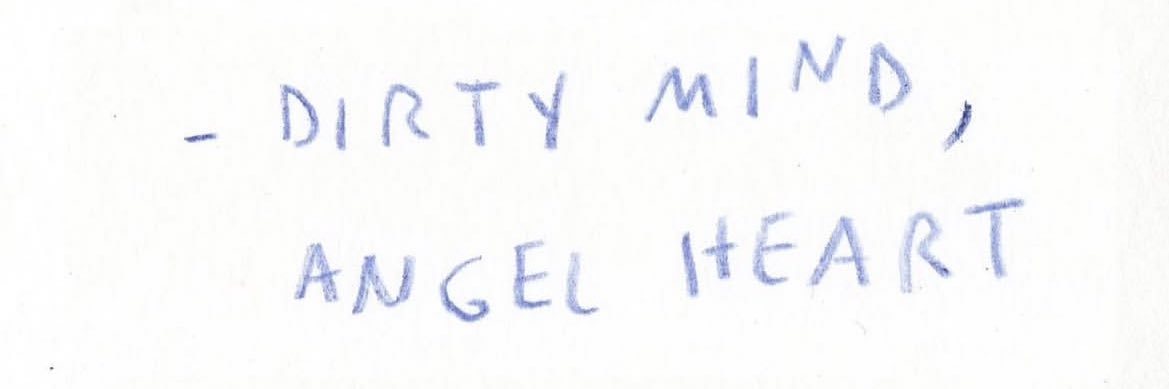 - DIRTY MIND,
ANGEL HEART